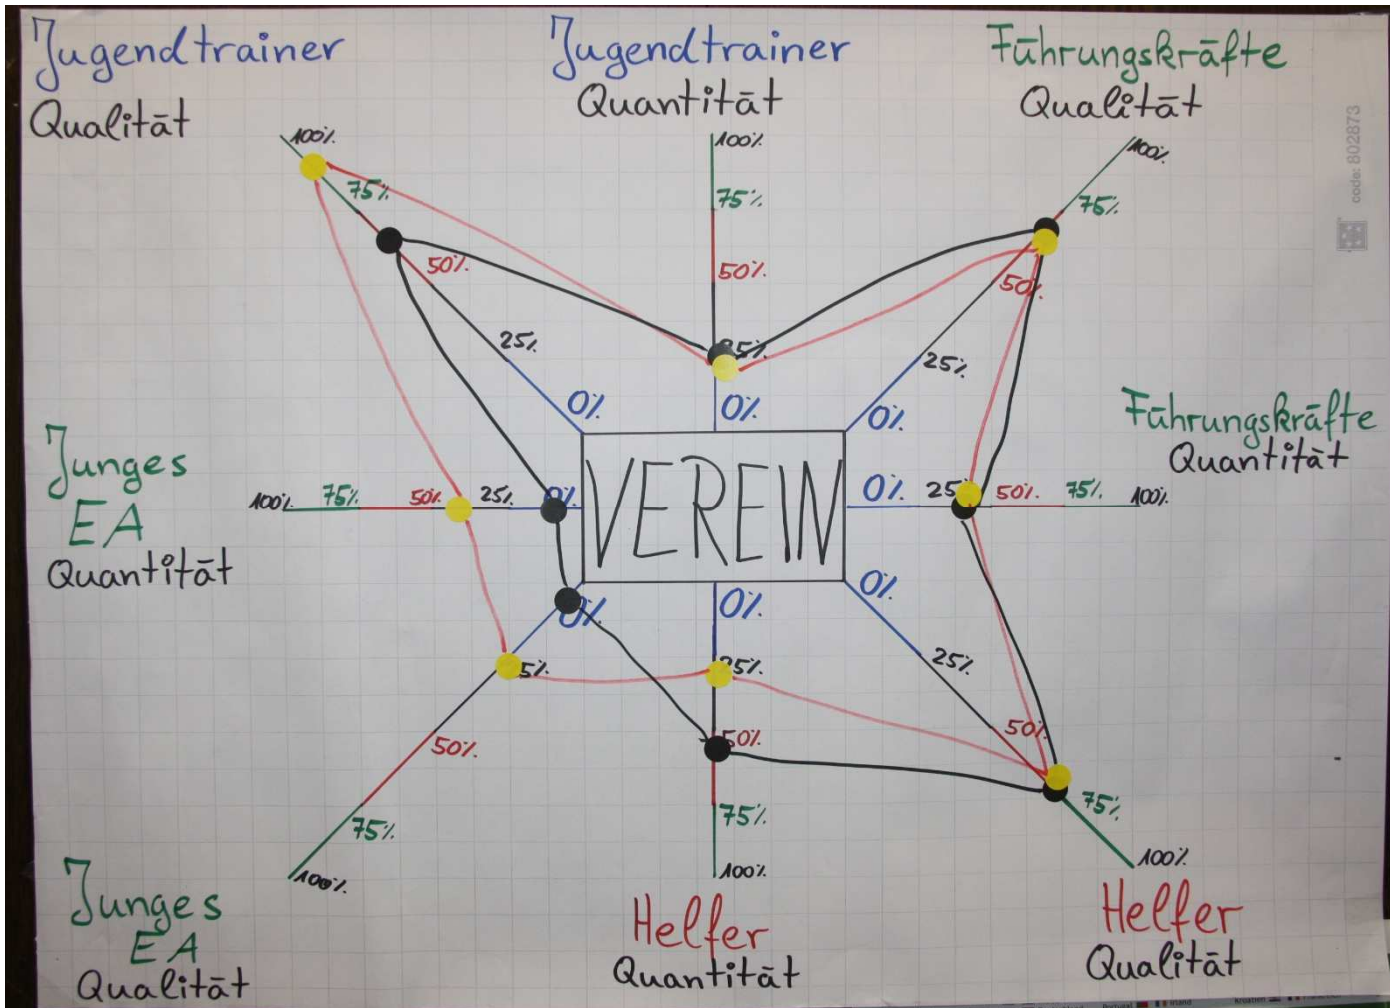 Jugendtrainer
Qualität
Jugendtrainer
Quantität
Führungskräfte
Qualität
code: 802873
100%
75%
50%
25%
0%
100%
75%
50%
25%
0%
100%
75%
50%
25%
0%
Junges
EA
Quantität
100% 75% 50% 25% 0%
VEREIN
0% 25% 50% 75% 100%
Führungskräfte
Quantität
0%
5%
50%
75%
100%
0%
25%
50%
75%
100%
0%
25%
50%
75%
100%
Junges
EA
Qualität
Helfer
Quantität
Helfer
Qualität